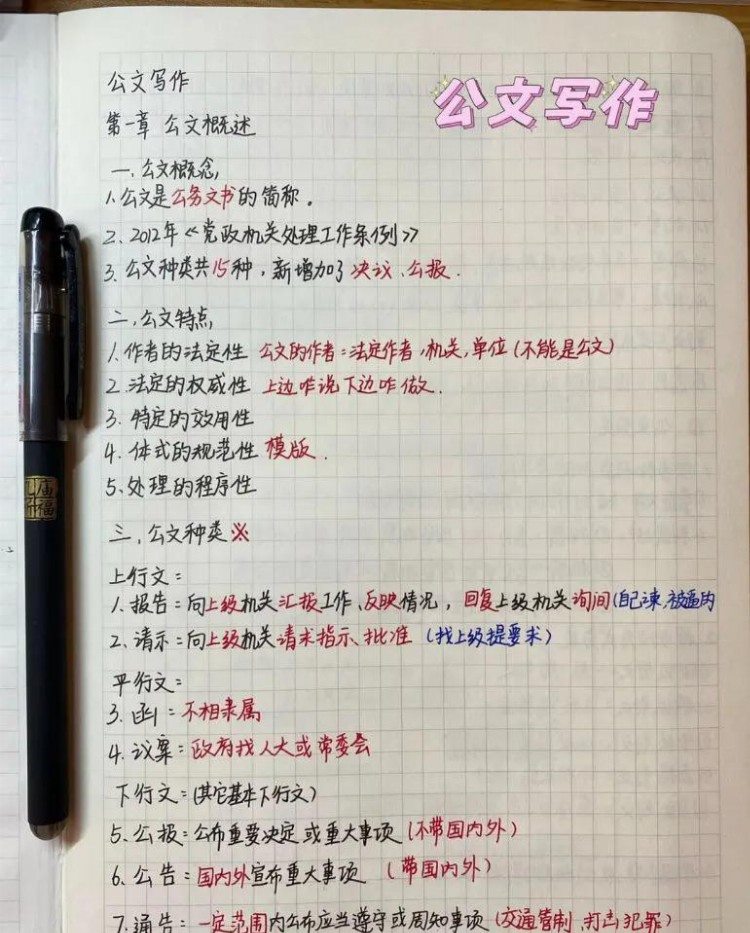 公文写作
公文写作
第一章 公文概述
一、公文概念
1. 公文是公务文书的简称。
2. 2012年《党政机关处理工作条例》
3. 公文种类共15种，新增加了决议、公报.
二、公文特点
1. 作者的法定性 公文的作者：法定作者，机关，单位（不能是公文）
2. 法定的权威性 上边咋说下边咋做.
3. 特定的效用性
4. 体式的规范性 模版.
5. 处理的程序性
三、公文种类※
上行文：
1. 报告：向上级机关汇报工作、反映情况，回复上级机关询问（自己来，被逼的
2. 请示：向上级机关请求指示、批准（找上级提要求）
平行文：
3. 函：不相隶属
4. 议案：政府找人大或常委会
下行文：（其它基本下行文）
5. 公报：公布重要决定或重大事项（不带国内外）
6. 公告：国内外宣布重大事项（带国内外）
7. 通告：一定范围内公布应当遵守或周知事项（交通管制，打击犯罪）